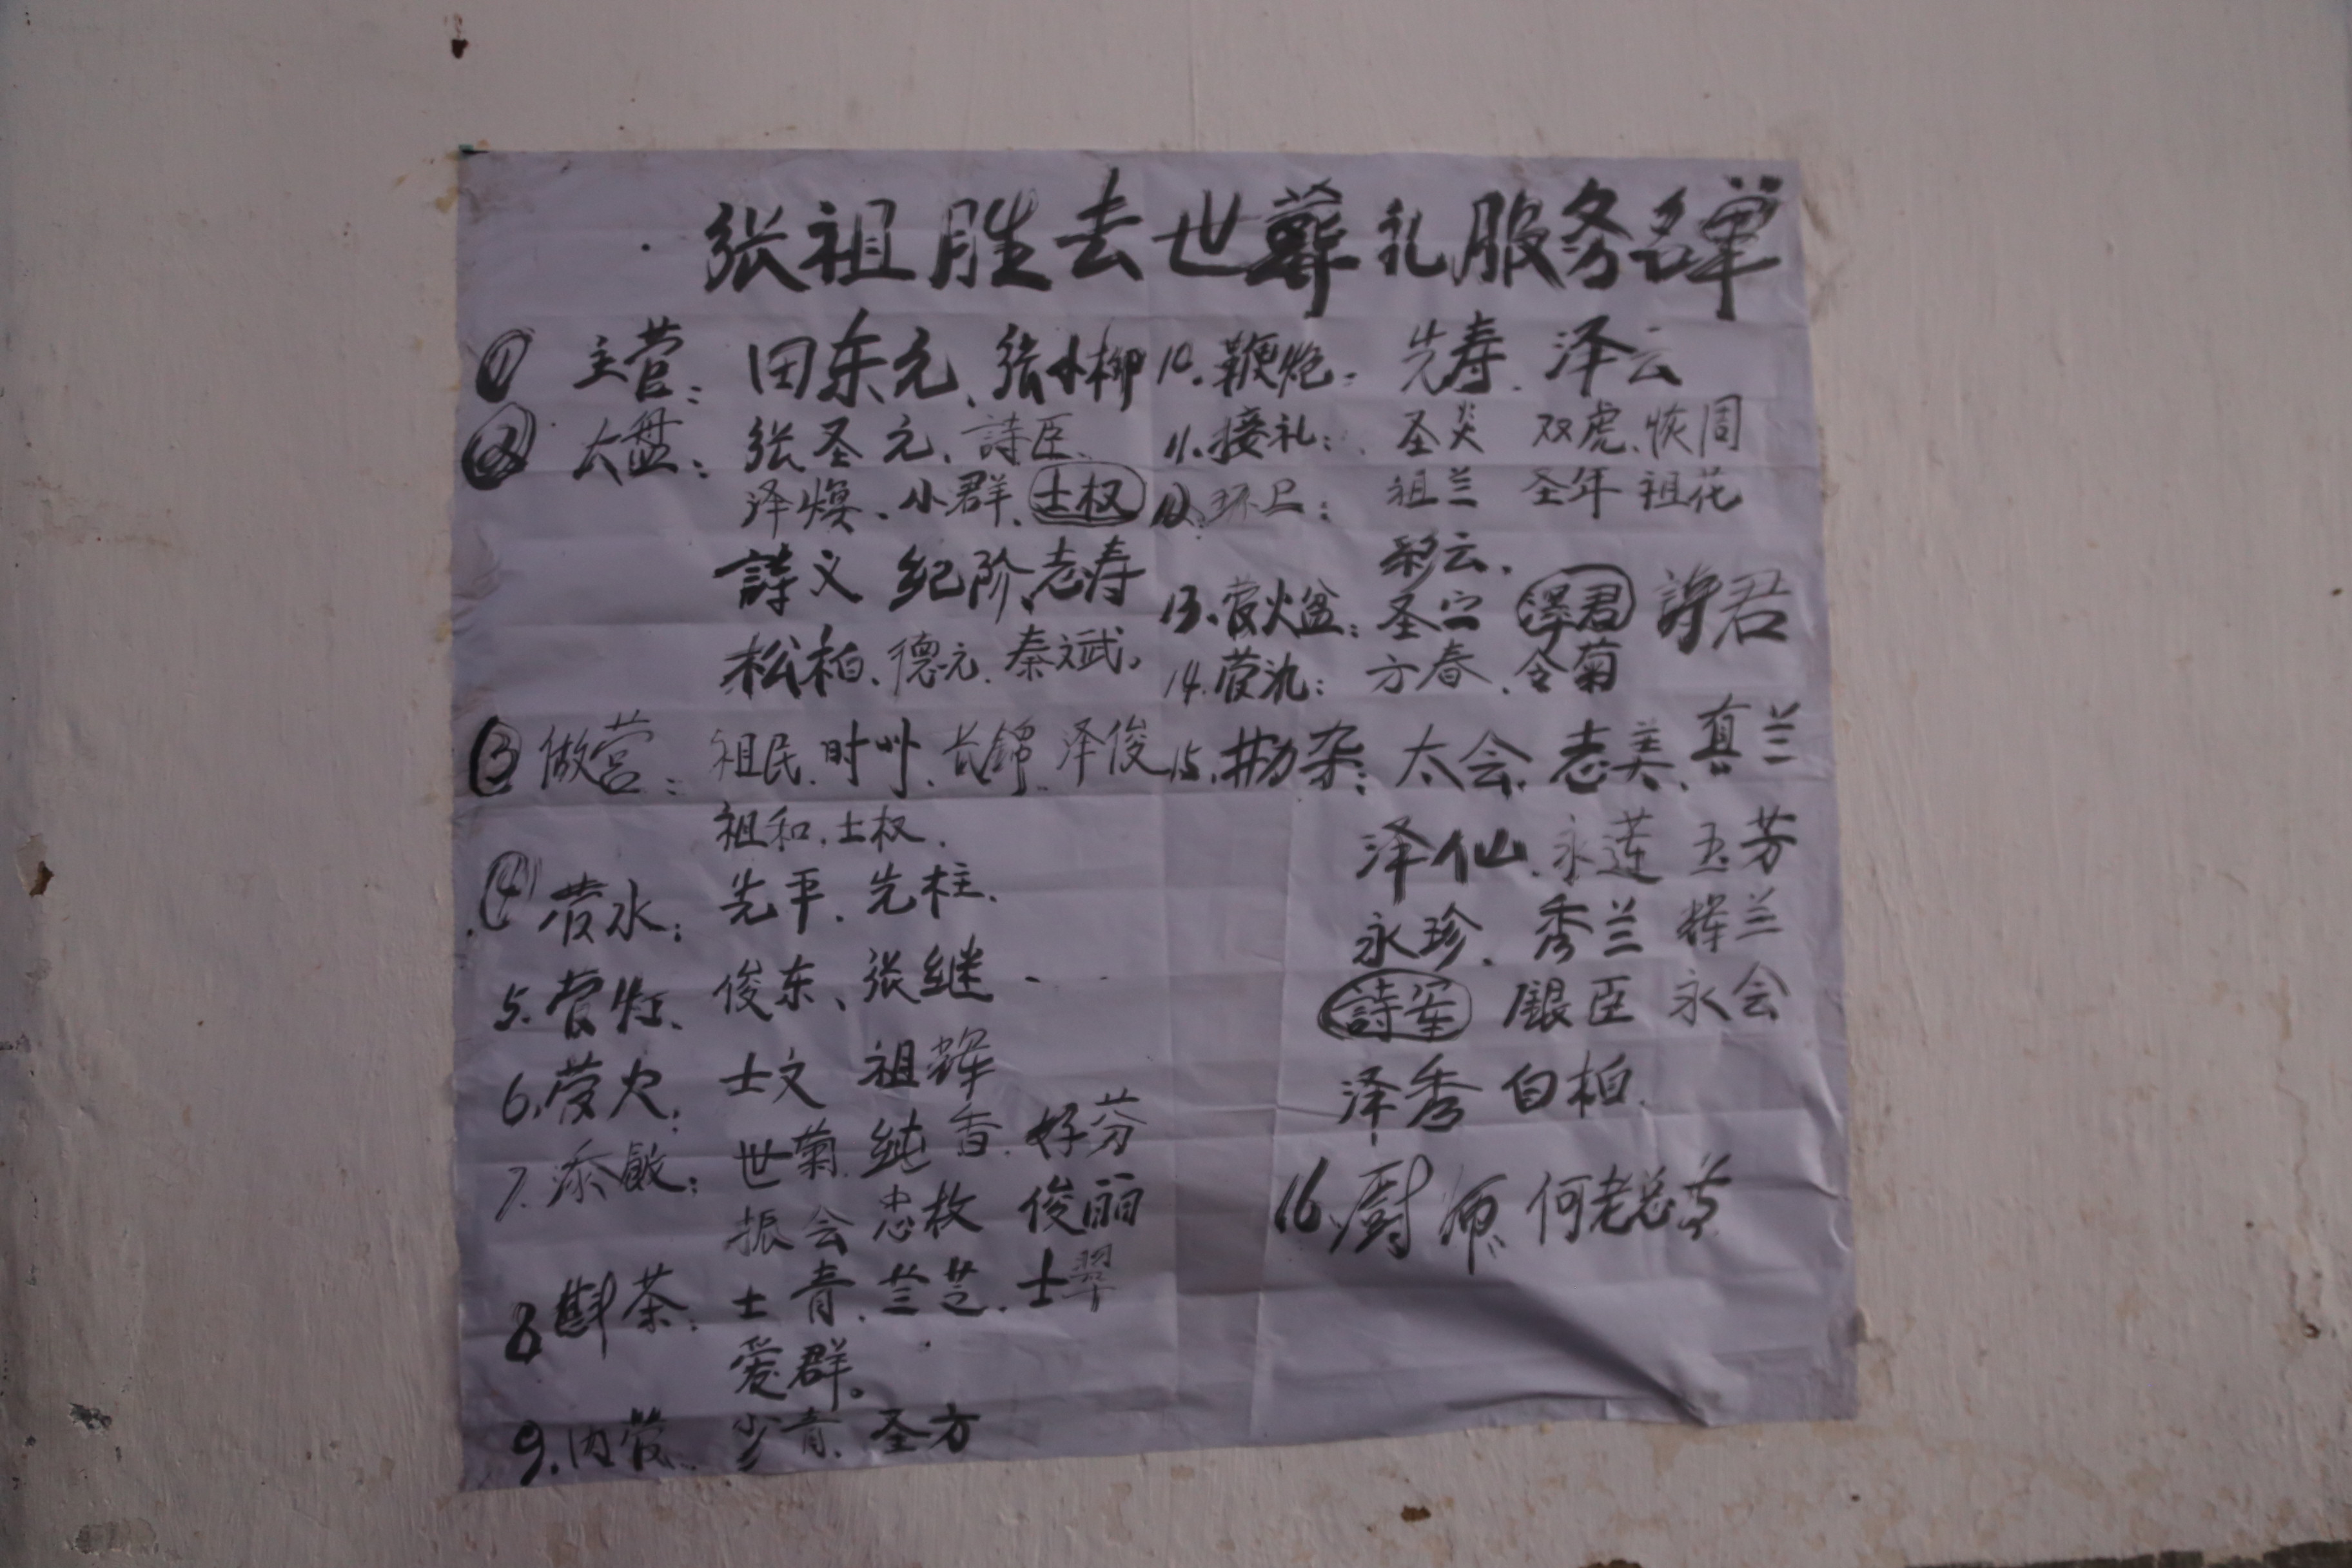 张祖胜去世葬礼服务名单
① 主营: 田东元、張小柳
② 大盘: 张圣元、詩臣、
泽焕、小群、士权
詩义 纪阶、志寿
松柏、德元、秦斌。
③ 做营: 祖民、时州、长锦、泽俊
祖和、士权、
④ 营水: 先平、先柱、
5、营灯、俊东、张继
6、营火: 士文 祖輝
7、添飯: 世菊、纯香、好芬
振会 忠枚 俊丽
8、斟茶: 士青、兰芝、士翠
爱群。
9、内营、少青、圣方
10、鞭炮: 先寿、泽云
11、接礼: 圣炎 双虎、恢周
12、环卫: 祖兰 圣年 祖花
彩云、
13、营火盆: 圣 澤君 詩君
14、营氿: 方春、令菊
15、勘杂: 太会、志美、真兰
泽仙、永莲 玉芳
永珍、秀兰 輝兰
詩军 銀臣 永会
泽秀 自柏、
16、厨师 何老总